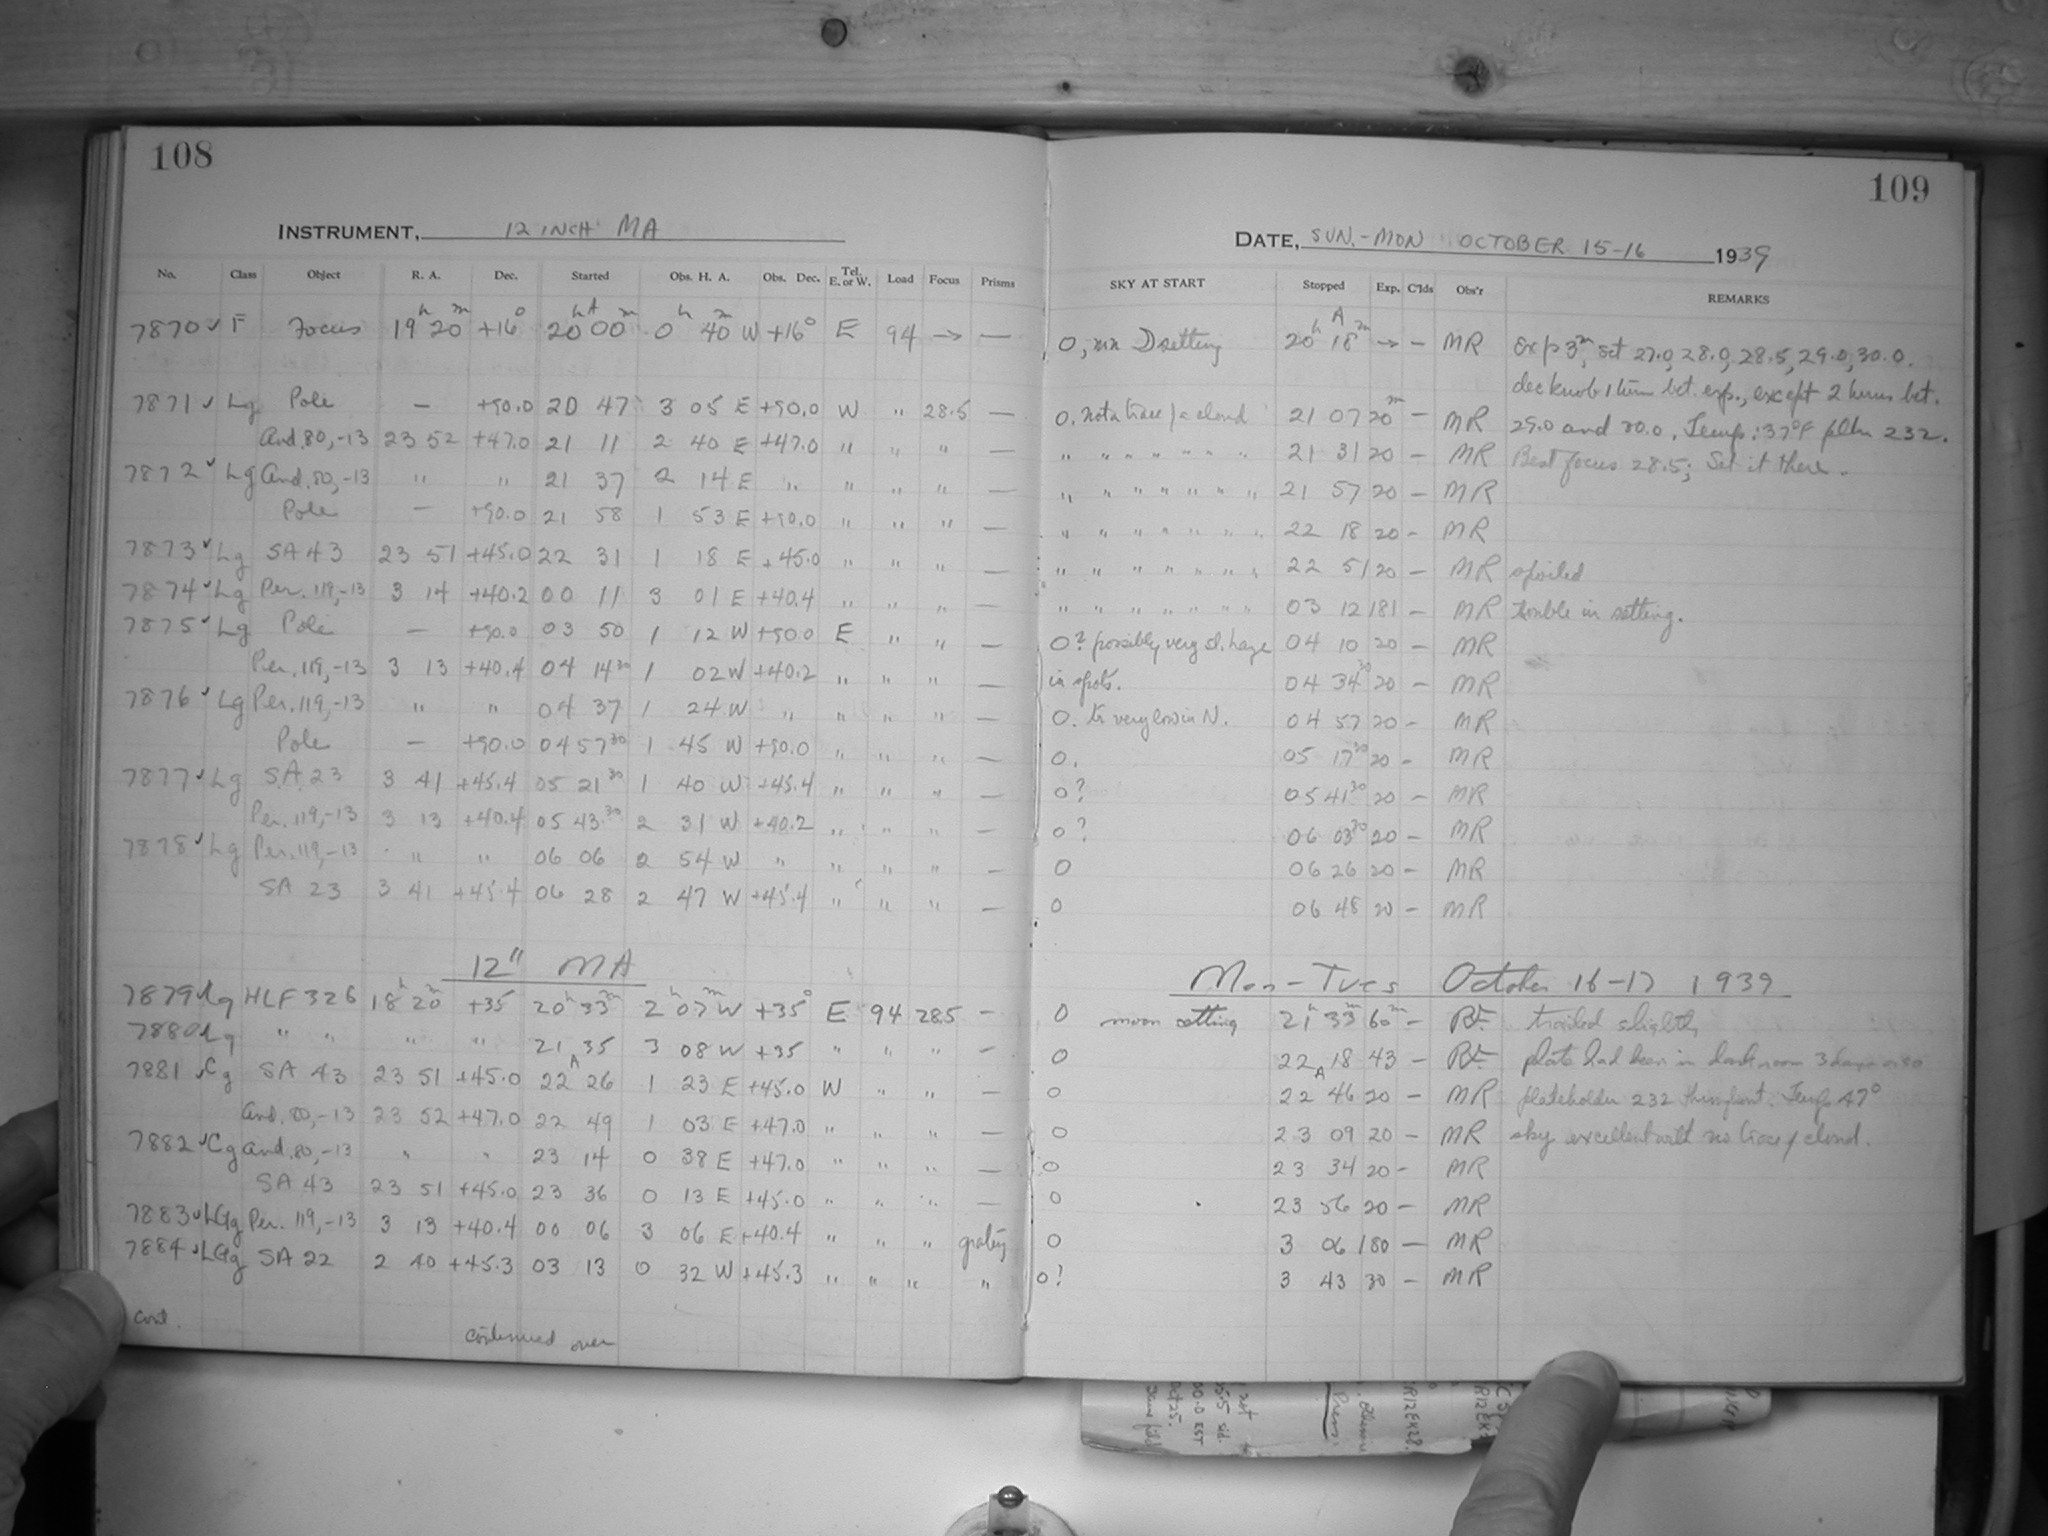 108
INSTRUMENT, 12 INCH MA
No. Class Object R. A. Dec. Started Obs. H. A. Obs. Dec. Tel. E. or W. Load Focus Prisms
7870 ✓ F Focus 19h 20m +16° 20h A 00m 0h 40m W +16° E 94 → —
7871 ✓ Lg Pole — +90.0 20 47 3 05 E +90.0 W " 28.5 —
And. 80, -13 23 52 +47.0 21 11 2 40 E +47.0 " " " —
7872 ✓ Lg And. 80, -13 " " 21 37 2 14 E " " " " —
Pole — +90.0 21 58 1 53 E +90.0 " " " —
7873 ✓ Lg SA 43 23 51 +45.0 22 31 1 18 E +45.0 " " " —
7874 ✓ Lg Per. 119, -13 3 14 +40.2 00 11 3 01 E +40.4 " " " —
7875 ✓ Lg Pole — +90.0 03 50 1 12 W +90.0 E " " —
Per. 119, -13 3 13 +40.4 04 14 30 1 02 W +40.2 " " " —
7876 ✓ Lg Per. 119, -13 " " 04 37 1 24 W " " " " —
Pole — +90.0 04 57 30 1 45 W +90.0 " " " —
7877 ✓ Lg S.A. 23 3 41 +45.4 05 21 30 1 40 W +45.4 " " " —
Per. 119, -13 3 13 +40.4 05 43 30 2 31 W +40.2 " " " —
7878 ✓ Lg Per. 119, -13 " " 06 06 2 54 W " " " " —
SA 23 3 41 +45.4 06 28 2 47 W +45.4 " " " —
12" MA
7879 ✓ Lg HLF 326 18h 20m +35 20h 33m 2h 07m W +35° E 94 28.5 —
7880 ✓ Lg " " " " 21 35 3 08 W +35 " " " —
7881 ✓ Cg SA 43 23 51 +45.0 22 A 26 1 23 E +45.0 W " " —
And. 80, -13 23 52 +47.0 22 49 1 03 E +47.0 " " " —
7882 ✓ Cg And. 80, -13 " " 23 14 0 38 E +47.0 " " " —
SA 43 23 51 +45.0 23 36 0 13 E +45.0 " " " —
7883 ✓ LGg Per. 119, -13 3 13 +40.4 00 06 3 06 E +40.4 " " " grating
7884 ✓ LGg SA 22 2 40 +45.3 03 13 0 32 W +45.3 " " " "
cont.
continued over
109
DATE, SUN.-MON OCTOBER 15-16 1939
SKY AT START Stopped Exp. C'lds Obs'r REMARKS
0, setting 20h A 18m → — MR exp 3m, set 27.0, 28.0, 28.5, 29.0, 30.0.
dec knob 1 turn bet. exp., except 2 turns bet.
0. not a trace of a cloud 21 07 20m — MR 29.0 and 30.0. Temp: 37°F plhr 232.
" " " " " " 21 31 20 — MR Best focus 28.5; Set it there.
" " " " " " " 21 57 20 — MR
" " " " " " " 22 18 20 — MR
" " " " " " " 22 51 20 — MR spoiled
" " " " " " " 03 12 181 — MR trouble in setting.
0? possibly very sl. haze 04 10 20 — MR
in spots. 04 34 30 20 — MR
0. tr very low in N. 04 57 20 — MR
0. 05 17 30 20 — MR
0? 05 41 30 20 — MR
0? 06 03 30 20 — MR
0 06 26 20 — MR
0 06 48 20 — MR
Mon-Tues October 16-17 1939
0 moon setting 21h 33m 60m — trailed slightly
0 22 18 43 — plate had been in darkroom 3 days or so
0 22 A 46 20 — MR plateholder 232 Temp 47°
0 23 09 20 — MR sky excellent with no trace of cloud.
0 23 34 20 — MR
0 23 56 20 — MR
0 3 06 180 — MR
0? 3 43 30 — MR